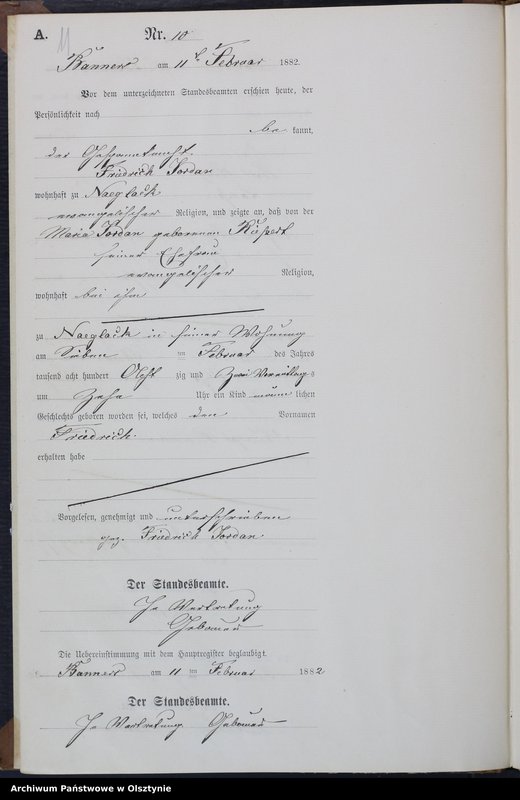 A.
11
Nr. 10
Banners am 11t Februar 1882.
Vor dem unterzeichneten Standesbeamten erschien heute, der
Persönlichkeit nach
be kannt,
der Gespannknecht
Friedrich Jordan
wohnhaft zu Naeglack
evangelischer Religion, und zeigte an, daß von der
Maria Jordan geborenen
seiner Ehefrau
evangelischer Religion,
wohnhaft bei ihm
zu Naeglack in seiner Wohnung
am Sieben ten Februar des Jahres
tausend acht hundert Acht zig und Zwei Vormittags
um Zehn Uhr ein Kind männ lichen
Geschlechts geboren worden sei, welches den Vornamen
Friedrich
erhalten habe
Vorgelesen, genehmigt und unterschrieben
gez. Friedrich Jordan
Der Standesbeamte.
In Vertretung
Gebauer
Die Uebereinstimmung mit dem Hauptregister beglaubigt.
Banners am 11 ten Februar 1882
Der Standesbeamte.
In Vertretung Gebauer
Archiwum Państwowe w Olsztynie